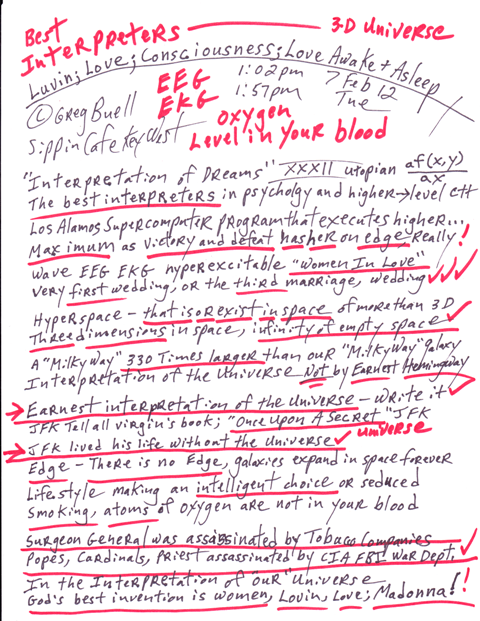 Best
Interpreters
3-D Universe
Luvin; Love; Consciousness; Love Awake + Asleep
© Greg Buell
EEG
EKG
1:02pm
1:57pm
7 Feb 12
Tue
Sippin Cafe Key West
oxygen
Level in Your blood
"Interpretation of Dreams" XXXII utopian af(x,y)
ax
The best interpreters in psycholgy and higher→level C++
Los Alamos Supercomputer program that executes higher...
Maximum as victory and defeat has her on edge, Really!
Wave EEG EKG hyperexcitable "Women In Love"
very first wedding, or the third marriage, wedding
Hyperspace - that is or exist in space of more than 3D
Three dimensions in space, infinity of empty space
A "MilkyWay" 330 Times larger than our "MilkyWay" galaxy
Interpretation of the Universe Not by Earnest Hemingway
→ Earnest interpretation of the Universe - Write it
JFK Tell all virgin's book; "Once Upon A Secret" JFK
→ JFK lived his life without the Universe universe
Edge - There is no Edge, galaxies expand in space forever
Lifestyle making an intelligent choice or seduced
Smoking, atoms of oxygen are not in your blood
Surgeon General was assassinated by Tobacco Companies
Popes, Cardinals, Priest assassinated by CIA FBI War Dept.
In the Interpretation of our "Universe
God's best invention is women, Lovin, Love; Madonna!!